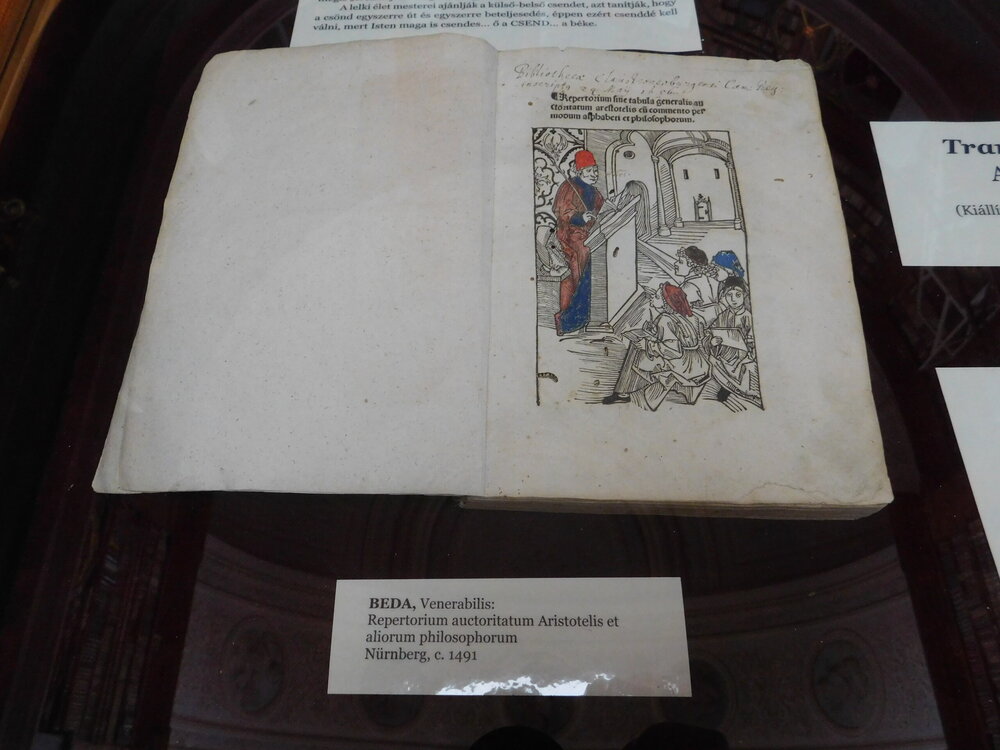 A lelki élet mesterei ajánlják a külső-belső csendet, azt tanítják, hogy
a csönd egyszerre út és egyszerre beteljesedés, éppen ezért csenddé kell
válni, mert Isten maga is csendes... ő a CSEND... a béke.
Bibliothecæ
inscripta 29 May
¶Repertorium siue tabula generalis au
ctoritatum arestotelis cū commento per
modum alphabeti et philosophorum.
Tra
A
(Kiállí
BEDA, Venerabilis:
Repertorium auctoritatum Aristotelis et
aliorum philosophorum
Nürnberg, c. 1491